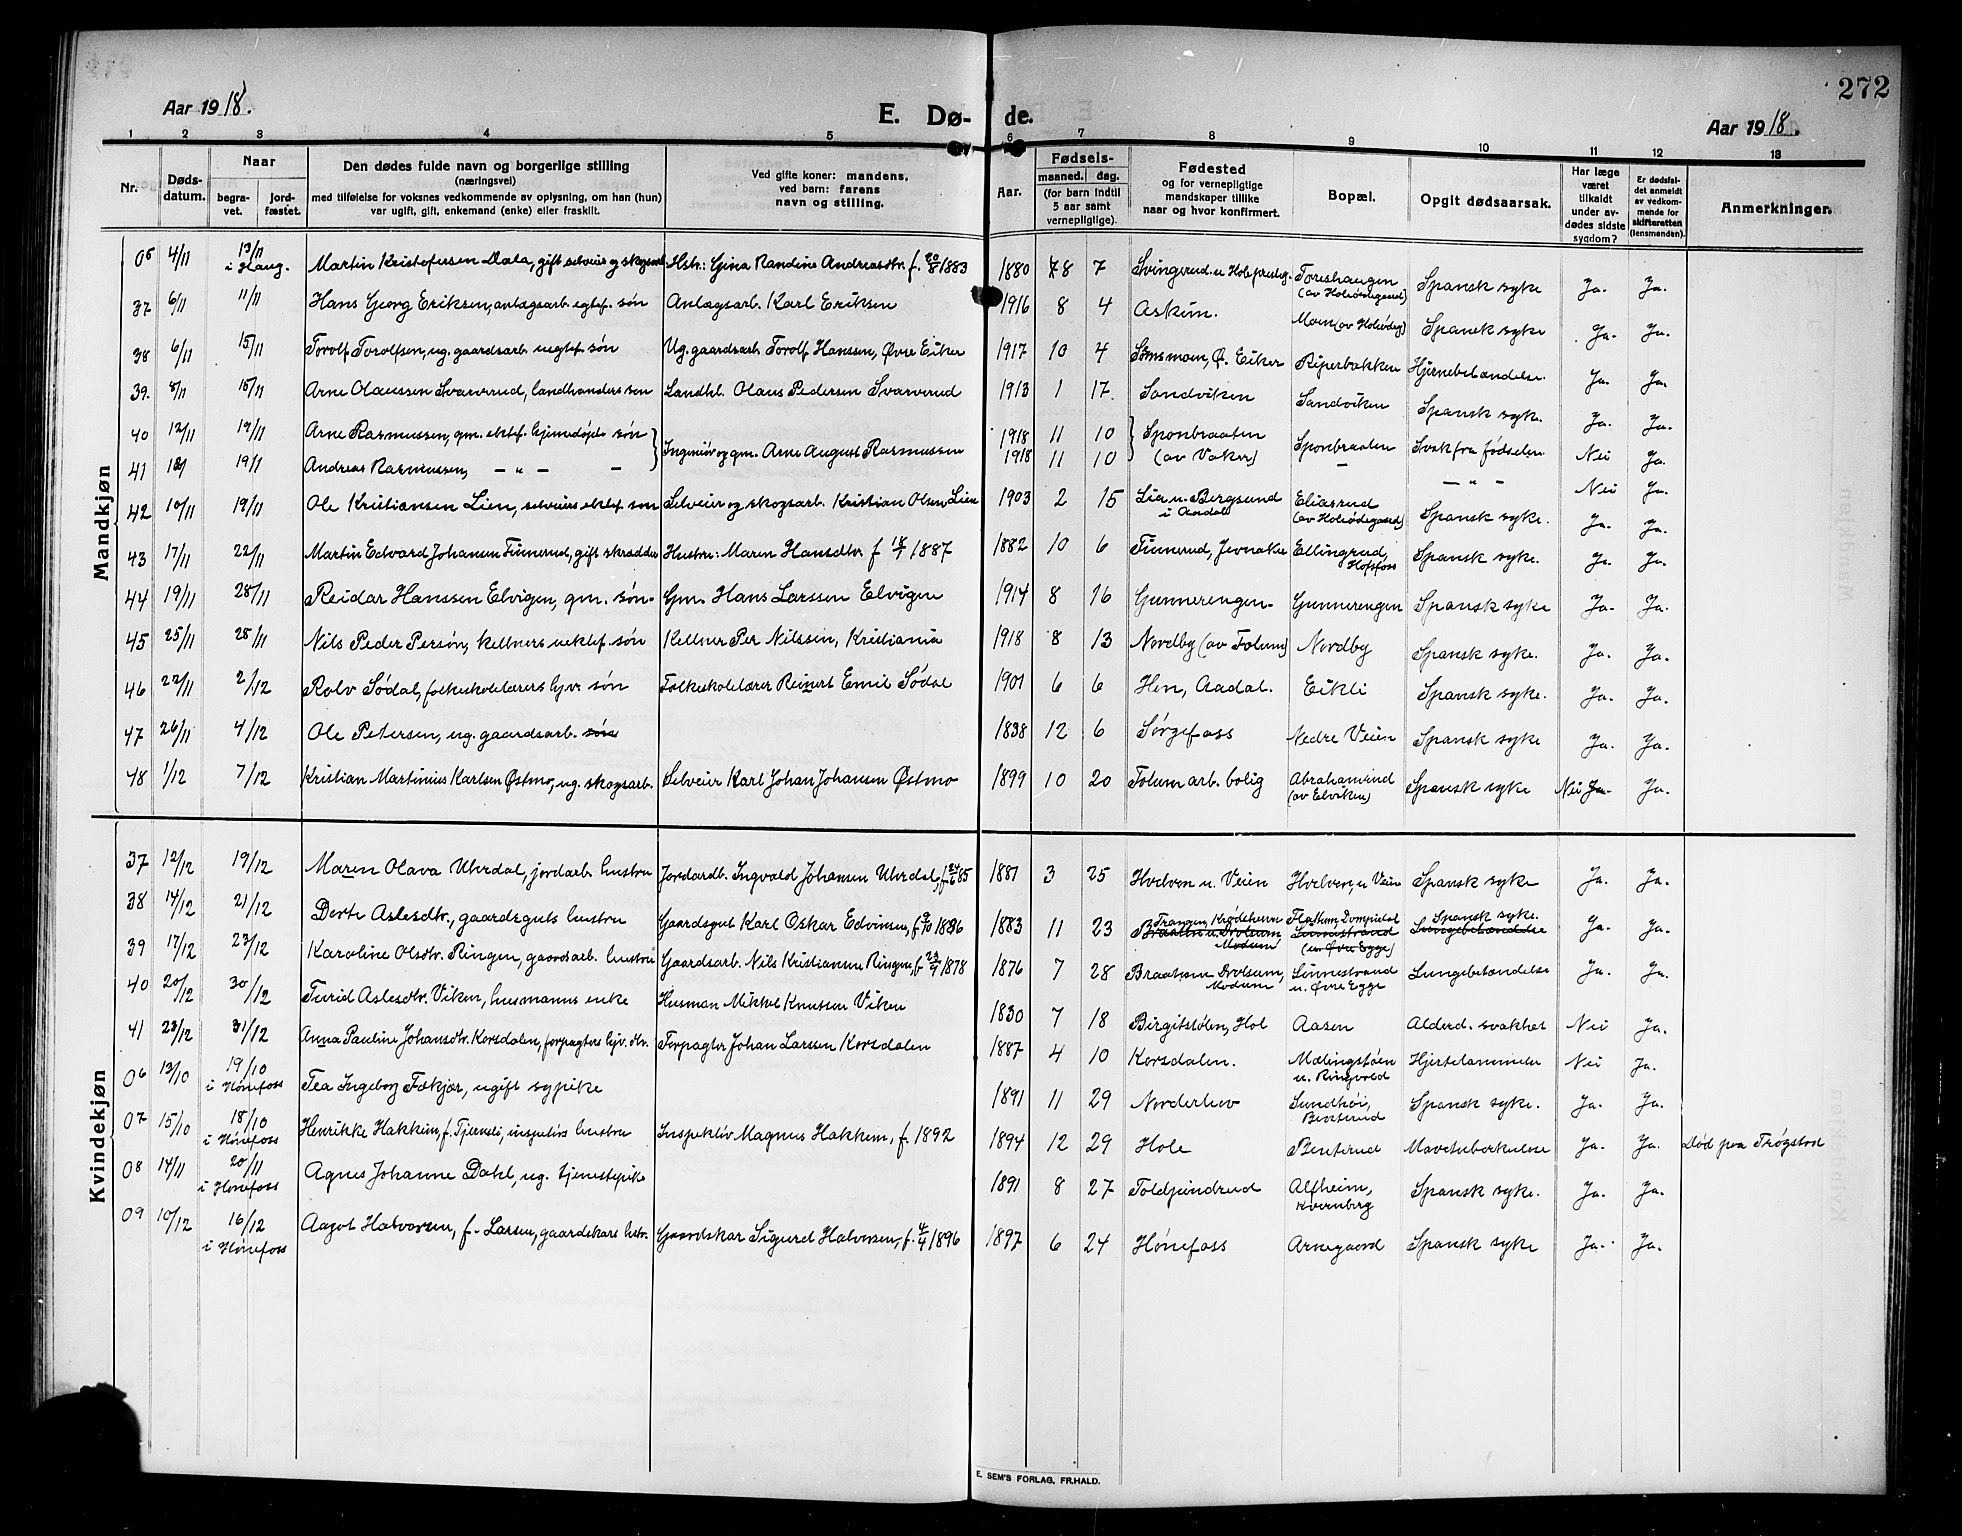 272
Aar 1918.
E. Dø- de.
Aar 1918.
1 2 3 4 5 6 7 8 9 10 11 12 13
Nr. Døds-datum. Naar begra-vet. jord-fæstet. Den dødes fulde navn og borgerlige stilling (næringsvei) med tilføielse for voksnes vedkommende av oplysning, om han (hun) var ugift, gift, enkemand (enke) eller fraskilt. Ved gifte koner: mandens, ved barn: farens navn og stilling. Aar. Fødsels- maaned. dag. (for barn indtil 5 aar samt vernepligtige). Fødested og for vernepligtige mandskaper tillike naar og hvor konfirmert. Bopæl. Opgit dødsaarsak. Har læge været tilkaldt under av-dødes sidste sygdom? Er dødsfal-det anmeldt av vedkom-mende for skifteretten (lensmanden). Anmerkninger.
Mandkjøn
05 4/11 13/11 i Haug. Martin Kristofersen Dala, gift selveier og skogsarb. Hstr: Gina Randine Andreasdtr. f. 20/8 1883 1880 8 7 Svingerud u. Hole prestegj. Toreshaugen (av Holtødegaard) Spansk syke Ja. Ja.
37 6/11 11/11 Hans Georg Eriksen, anlægsarb. egtef. søn Anlægsarb. Karl Eriksen 1916 8 4 Askim. Moen (av Holtødeg) Spansk syke Ja. Ja.
38 6/11 15/11 Torolf Torolfsen, ug. gaardsarb. uegtef. søn Ug. gaardsarb. Torolf Hanssen, Øvre Eiker 1917 10 4 Semsmoen, Ø. Eiker Piperbakken Hjernebetændelse. Ja. Ja.
39. 8/11 15/11 Arne Olaussen Svarverud, landhandlers søn Landhl. Olaus Pedersen Svarverud 1913 1 17. Sandviken Sandviken Spansk syke. Ja. Ja.
40 12/11 19/11 Arne Rasmussen, gm. ektef. hjemmedøpt søn Ingeniør og gm. Arne August Rasmussen 1918 11 10 Sponbraaten (av Vaker) Sponbraaten Svak fra fødselen Nei Ja.
41 12/11 19/11 Andreas Rasmussen, — „ — — 1918 11 10 — — „ — Nei Ja.
42 10/11 19/11 Ole Kristiansen Lien, selveiers ektef. søn Selveier og skogsarb. Kristian Olsen Lien 1903 2 15 Lia u. Bergsund i Aadal Eliasrud (av Holtødegaard) Spansk syke. Ja. Ja.
43 17/11 22/11 Martin Edvard Johansen Finnerud, gift skrædder Hustru: Maren Hansdtr. f 18/7 1887 1882 10 6 Finnerud, Jevnaker Ellingrud, Hofsfoss Spansk syke. Ja. Ja.
44 19/11 28/11 Reidar Hanssen Elvigen, gm. søn. Gm. Hans Larssen Elvigen 1914 8 16 Gunnerengen. Gunnerengen Spansk syke Ja. Ja.
45 25/11 28/11 Nils Peder Persøn, kellners uektef. søn Kellner Per Nilssen, Kristiania 1918 8 13 Nordby (av Tolum) Nordby Spansk syke. Ja. Ja.
46 22/11 2/12 Rolv Sødal, folkeskolelærers hjv. søn Folkeskolelærer Reinert Emil Sødal 1901 6 6 Hen, Aadal. Eikli Spansk syke. Ja. Ja.
47 26/11 4/12 Ole Petersen, ug. gaardsarb. søn 1838 12 6 Sørgefoss Nedre Veien Spansk syke Ja. Ja.
48 1/12 7/12 Kristian Martinius Karlsen Østmo, ug. skogsarb. Selveier Karl Johan Johansen Østmo 1899 10 20 Tolum arb. bolig Abrahamrud (av Elviken) Spansk syke Nei Ja. Ja.
Kvindekjøn
37 12/12 19/12 Maren Olava Ulverdal, jordarb. hustru Jordardb. Ingvald Johansen Ulverdal, f. 24/6 85 1881 3 25 Hvelven u. Veien Hvelven, u Veien Spansk syke Ja. Ja.
38 14/12 21/12 Dorte Aslesdtr., gaardsguts hustru Gaardsgut Karl Oskar Edvinsen, f. 9/10 1896 1883 11 23 Trangen, Krødsherm Braaten u. Drolsum Modum Flaskem Dompidal Linnestrand (u. Øvre Egge) Spansk syke. Lungebetændelse Ja. Ja.
39 17/12 23/12 Karoline Olsdtr. Ringen, gaardsarb. hustru Gaardsarb. Nils Kristiansen Ringen, f. 23/9 1878 1876 7 28 Braaten Drolsum, Modum Linnestrand u. Øvre Egge Lungebetændelse Ja. Ja.
40 20/12 30/12 Turid Aslesdtr. Viken, husmanns enke Husman Mikkel Knutsen Viken 1830 7 18 Birgitstølen, Hol Aasen Alderd. svakhet Nei Ja.
41 23/12 31/12 Anna Pauline Johansdtr. Korsdalen, forpagters hjv. dtr. Forpagter Johan Larssen Korsdalen 1887 4 10 Korsdalen. Mælingstøen u. Ringvold Hjertelammelse Nei Ja.
06 13/10 19/10 i Hønefoss Tea Ingeborg Fækjær, ugift sypike 1891 11 29 Norderhov Sundhöi, Benterud Spansk syke. Ja. Ja.
07 15/10 18/10 i Hønefoss Henrikke Hakkim, f. Tjernsli, inspektørs hustru Inspektör Magnus Hakkem, f. 1892 1894 12 29 Hole Benterud Mavetuberkulose Ja. Ja. Død paa Trøgstad
08 14/11 20/11 i Hønefoss Agnes Johanne Dahl, ug. tjenestepike 1891 8 27 Toldpindrud Alfheim, Kvernberg Spansk syke. Ja. Ja.
09 10/12 16/12 i Hønefoss Aagot Halvorsen, f. Larsen, gaardskars hustr. Gaardskar Sigurd Halvorsen, f. 4/4 1896 1897 6 24 Hønefoss Arnegaard Spansk syke Ja. Ja.
E. SEM'S FORLAG, FR.HALD.